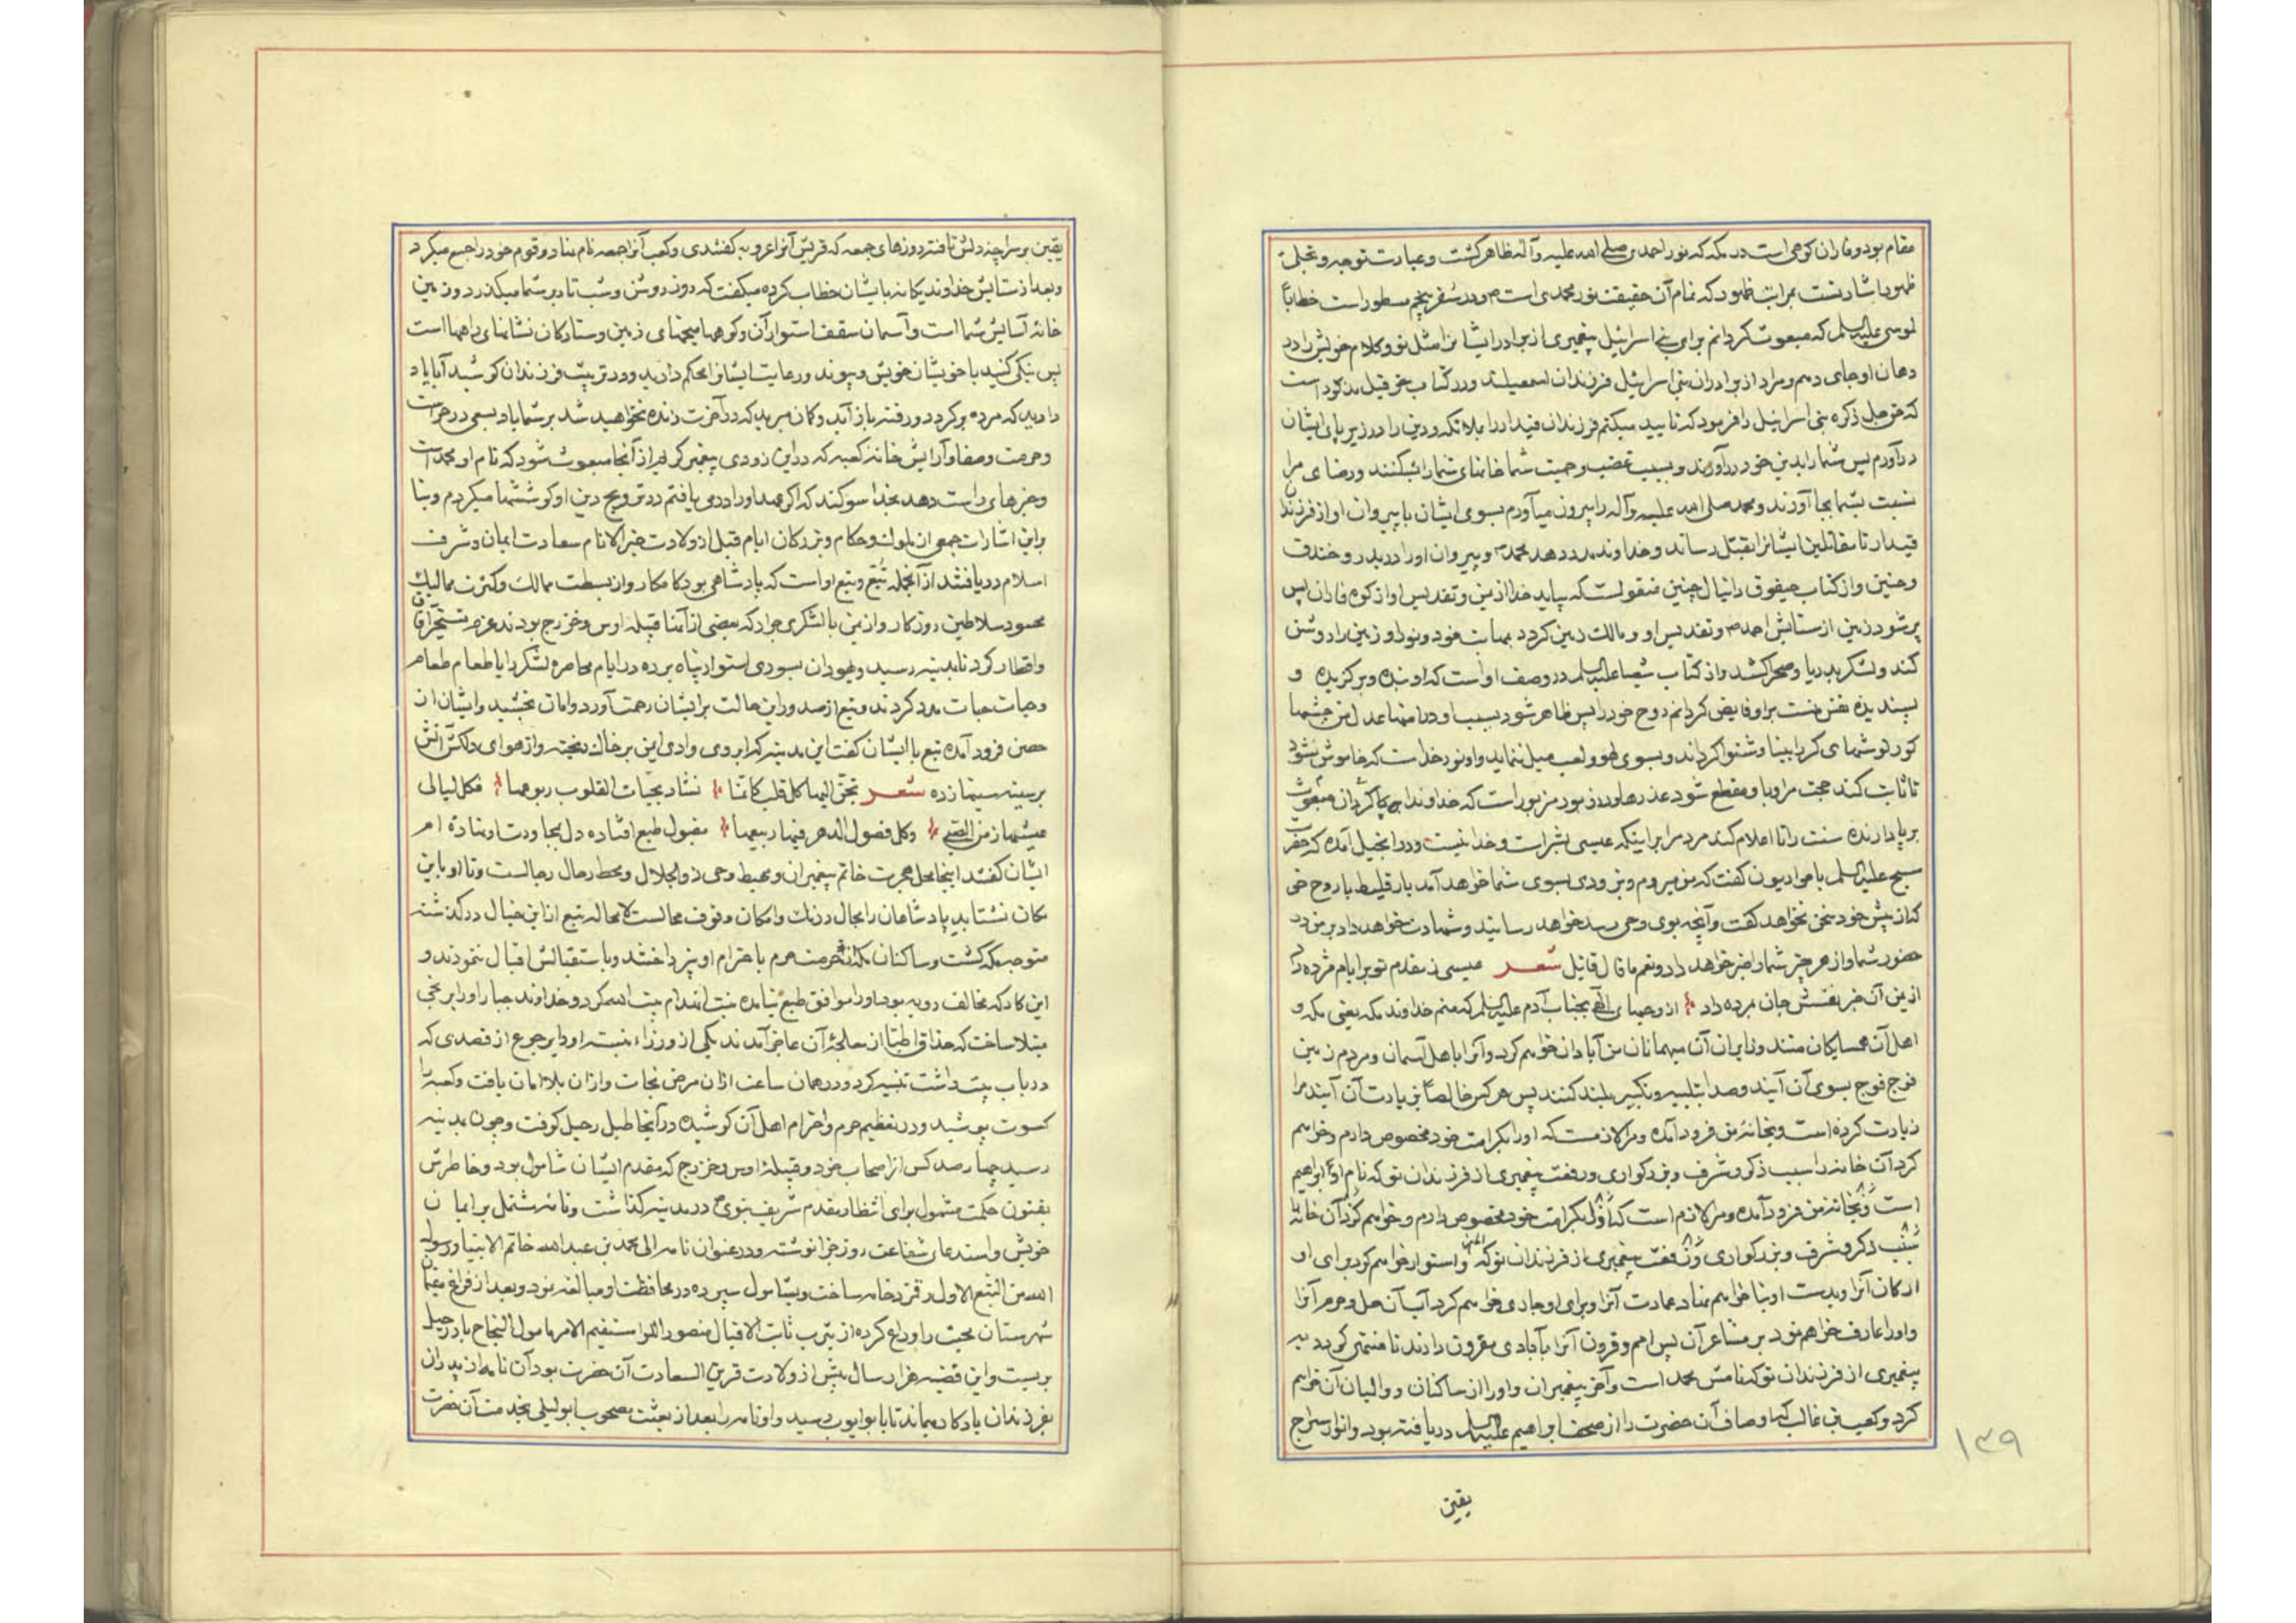 مقام بود و فاران کوهی است در مکه که نور احمدی صلی الله علیه و آله ظاهر گشت و عبارت توجه و تجلی
ظهور اشارتست بمراتب ظهور که تمام آن حقیقت نور محمدی است ص و در سفر پنجم مسطور است خطاباً
لموسی علیه السلم که مبعوث گردانم برای بنی اسرائیل پیغمبری از برادر ایشان را مثل تو و کلام خویش را در
دهان او جای دهم و مراد از برادران بنی اسرائیل فرزندان اسمعیلند و در کتاب حزقیل مذکور است
که عز و جل ذکره بنی اسرائیل را فرمود که تایید میکنم فرزندان قیدار را بملائکه و دین را در زیر پای ایشان
درآورم پس شما را بدین خود درآورند و بسبب غضب و حمیت شما خانهای شما را بشکنند و رضای مرا
نسبت بشما بجا آورند و محمد صلی الله علیه و آله را بیرون میآورم بسوی ایشان با پیروان او از فرزندان
قیدار تا مقاتلین ایشانرا بقتل رساند و خداوند مدد دهد محمد ص و پیروان او را در بدر و خندق
و حنین و از کتاب حیقوق دانیال چنین منقولست که بیاید خدا از یمن و تقدیس او از کوه فاران پس
پر شود زمین از ستایش احمد ص و تقدیس او و مالک زمین گردد بمهابت خود و نور او زمین را روشن
کند و لشکر بدریا و صحرا کشد و از کتاب شعیا علیه السلم در وصف او است که او بنده و برگزیده و
پسندیده نفس منست بر او فایض گردانم روح خود را پس ظاهر شود بسبب او در امتها عدل من چشمها
کور و گوشهای کر را بینا و شنوا گرداند و بسوی لهو و لعب میل ننماید و او نور خداست که خاموش نشود
تا ثابت کند حجت مرا و با و مقطع شود عذرها و در زبور مزبور است که خداوندا برپا گردان مبعوث
برپا دارنده سنت را تا اعلام کند مردم را بر اینکه عیسی بشر است و خدا نیست و در انجیل آمده که حضرت
مسیح علیه السلم با حواریون گفت که من میروم و بزودی بسوی شما خواهد آمد بارقلیط با روح حق
که از پیش خود سخن نخواهد گفت و آنچه بوی وحی رسد خواهد رسانید و شهادت خواهد داد بر من در
حضور شما و از هر چیز شما را خبر خواهد داد و نعم ما قال قائل شعر عیسی ز مقدم تو بر ایام مژده داد
از یمن آن خبر نفسش جان بمرده داد از وحیهای الهی بجناب آدم علیه السلم که منم خداوند مکه یعنی مکه و
اهل آن همسایگان منند و زایران آن میهمانان من آبادان خواهم کرد و آنرا باهل آسمان و مردم زمین
فوج فوج بسوی آن آیند و صدا بتلبیه و تکبیر بلند کنند پس هر کس خالصاً بزیارت آن آیند مرا
زیارت کرده است و بخانه من فرود آمده و مرا لازمست که او را بکرامت خود مخصوص دارم و خواهم
کرد آن خانه را سبب ذکر و شرف و بزرگواری و رفعت پیغمبری از فرزندان تو که نام او ابراهیم
است و بخانه من فرود آمده و مرا لازم است که او را بکرامت خود مخصوص دارم و خواهم کرد آن خانه را
سبب ذکر و شرف و بزرگواری و رفعت پیغمبری از فرزندان تو که و استوار خواهم کرد برای او
ارکان آنرا و بدست او بنا خواهم نهاد عمارت آنرا و برای او جاری خواهم کرد آب آن حل و حرم آنرا
و او را عارف خواهم نمود بر مشاعر آن پس امم و قرون آنرا بآبادی مقرون دارند تا منتهی گردد به
پیغمبری از فرزندان تو که نامش محمد است و آخر پیغمبران و او را از ساکنان و والیان آن خواهم
کرد و کعب بن غالب که اوصاف آن حضرت را از صحف ابراهیم علیه السلم دریافته بود و انوار سراج
۱۳۹
یقین
یقین بر سراچه دلش تافته روزهای جمعه که قریش آنرا عروبه گفتندی و کعب آنرا جمعه نام نهاد و قوم خود را جمع میکرد
و بعد از ستایش خداوند یگانه بایشان خطاب کرده میگفت که روز روشن و شب تار بر شما میگذرد و زمین
خانه آسایش شما است و آسمان سقف استوار آن و کوهها میخهای زمین و ستارگان نشانهای راهها است
پس نیکی کنید با خویشان خویش و پیوند و رعایت ایشانرا محکم دارید و در تربیت فرزندان کوشید آیا یاد
دارید که مرده برگردد و رفته باز آید و گمان مبرید که در آخرت زنده نخواهید شد بر شما باد بسعی در حراست
و حرمت و صفا و آرایش خانه کعبه که در این زودی پیغمبر گرامی از آنجا مبعوث شود که نام او محمد است
و خبرهای راست دهد بخدا سوگند که اگر عهد او را درمی یافتم در ترویج دین او کوششها میکردم و بنا
بر این اشارات جمعی از ملوک و حکام و بزرگان ایام قبل از ولادت خیر الانام سعادت ایمان و شرف
اسلام دریافتند از آنجمله تبع و تبع او است که پادشاهی بود کامکار و از بسطت ممالک و کثرت ممالیک
محسود سلاطین روزگار و از یمن با لشکری جرار که بعضی از آنها قبیله اوس و خزرج بودند عزم تسخیر آفاق
و اقطار کرد تا بمدینه رسید و یهودان بسوری استوار پناه برده در ایام محاصره لشکر او را با طعام طعام
و حیات حیات مدد کردند و تبع از صدور این حالت بر ایشان رحمت آورد و امان بخشید و ایشان از
حصن فرود آمده تبع با ایشان گفت این مدینه که ابروی وادی ایمن بر خاک ریخته و از هوای دلکش آتش
بر سینه سینا زده شعر تحن الیها کل قلب کانما تشاد بحبات القلوب ربوعها فکل لیالی
عیشها زمن الصبی و کل فصول الدهر فیها ربیعها مقبول طبع افتاده دل بمجاورت او نهاده ام
ایشان گفتند اینجا محل هجرت خاتم پیغمبران و مهبط وحی ذو الجلال و محط رحال رجالست و تا او باین
مکان نشتابد پادشاهان را مجال درنگ و امکان وقوف محالست لا محاله تبع از این خیال درگذشته
متوجه مکه گشت و ساکنان مکه باحترام او نپرداختند و باستقبالش اقبال ننمودند و
این کار که مخالف رویه بود او را موافق طبع نیامده نیت انهدام بیت الله کرد و خداوند جبار او را برنجی
مبتلا ساخت که حذاق اطبا از معالجه آن عاجز آمدند یکی از وزراء نیت او را بر رجوع از قصدی که
در باب بیت داشت تنبیه کرد و در همان ساعت از آن مرض نجات و از آن بلا امان یافت و کعبه را
کسوت پوشید و در تعظیم حرم و احترام اهل آن کوشیده در آنجا طبل رحیل کوفت و چون بمدینه
رسید چهار صد کس از اصحاب خود و قبیله اوس و خزرج که مقدم ایشان شامول بود و خاطرش
بفنون حکمت مشمول برای انتظار مقدم شریف نبوی ص در مدینه گذاشت و نامه مشتمل بر ایمان
خویش و استدعای شفاعت روز جزا نوشته و در عنوان نامه الی محمد بن عبد الله خاتم الانبیا و رسول
الله من التبع الاول رقم زد خاتمه ساخت و بشامول سپرده در محافظت او مبالغه نمود و بعد از فراغ
شهرستان محبت را وداع کرده از یثرب ثابت الاقبال منصور اللوا مستقیم الامر مامول النجاح بار رحیل
بربست و این قضیه هزار سال پیش از ولادت قرین السعادت آن حضرت بود آن نامه از پدران
بفرزندان یادگار میماند تا بابو ایوب رسید و او نامه را بعد از بعثت بمصحوب ابو لیلی بخدمت آن حضرت